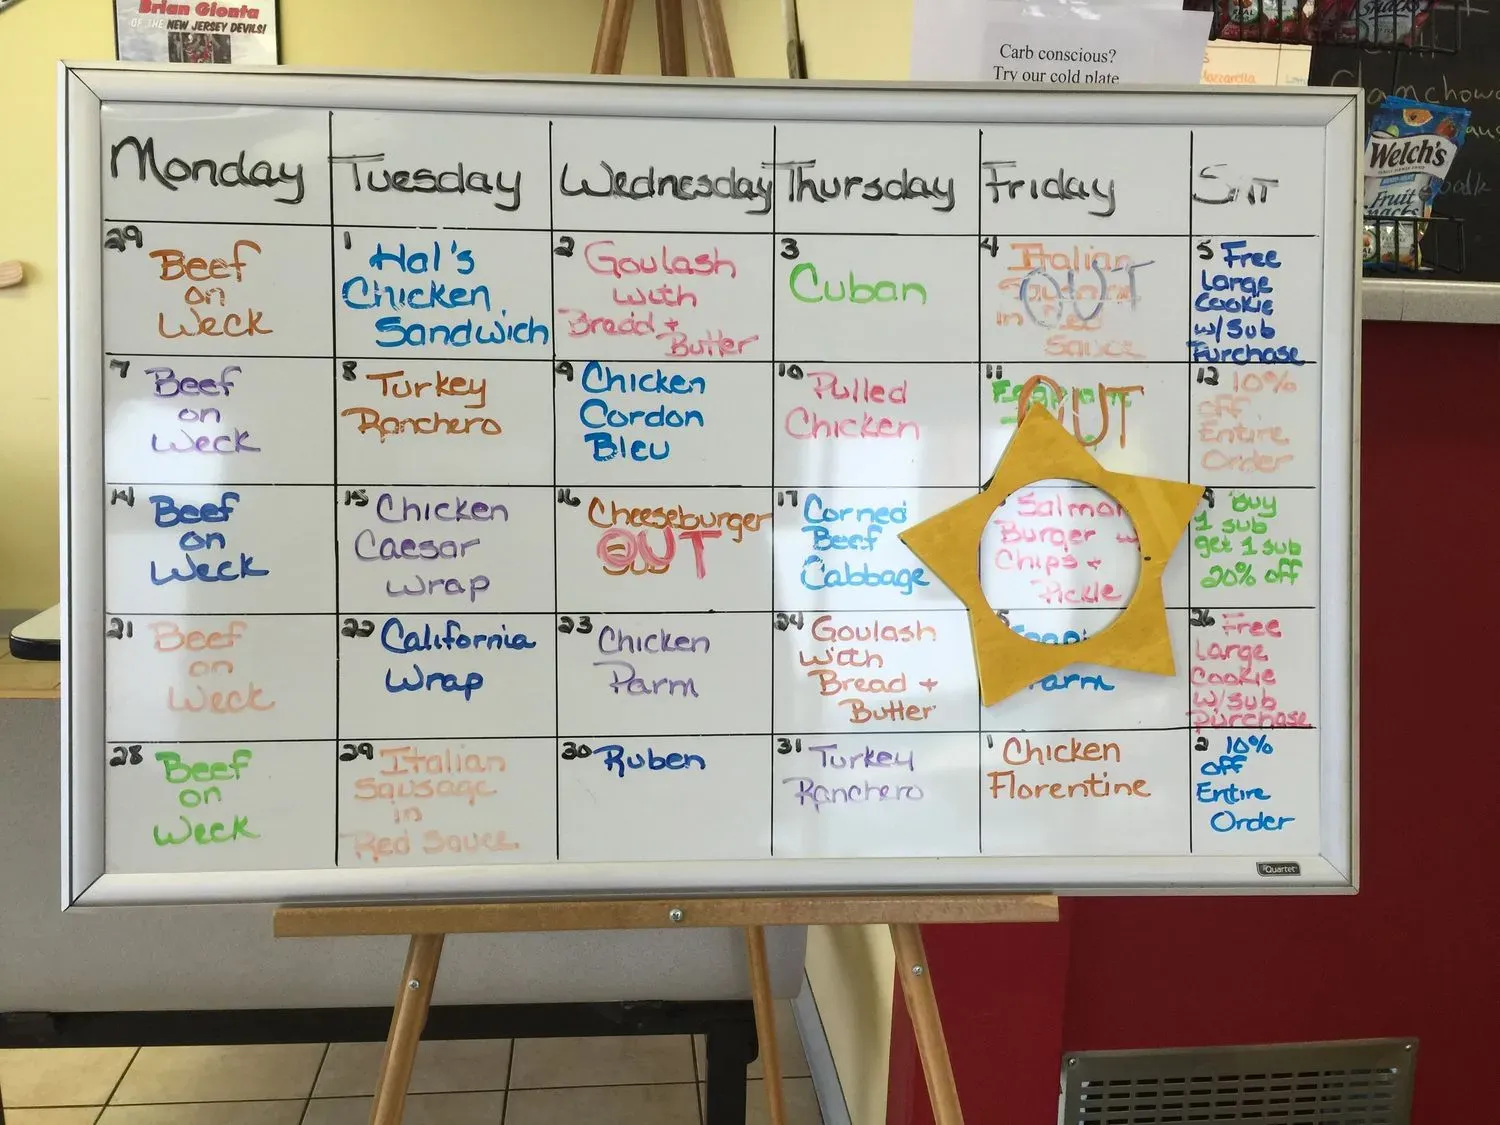 Brian Gionta
OF THE NEW JERSEY DEVILS!
Carb conscious?
Try our cold plate
Mozzarella
Welch's
Fruit
Snacks
Monday
Tuesday
Wednesday
Thursday
Friday
29
Beef
on
Weck
1
Hal's
Chicken
Sandwich
2
Goulash
with
Bread +
Butter
3
Cuban
4
Italian
OUT
in Red
Sauce
5 Free
Large
Cookie
w/sub
Purchase
7
Beef
on
Weck
8
Turkey
Ranchero
9 Chicken
Cordon
Bleu
10
Pulled
Chicken
11
OUT
12 10%
off
Entire
Order
14
Beef
on
Weck
15
Chicken
Caesar
Wrap
16
Cheeseburger
OUT
17
Corned
Beef
Cabbage
Salmon
Burger w
Chips +
Pickle
Buy
1 sub
get 1 sub
20% off
21
Beef
on
Weck
22
California
Wrap
23
Chicken
Parm
24
Goulash
With
Bread +
Butter
Parm
26
Free
Large
Cookie
w/sub
purchase
28
Beef
on
Weck
29
Italian
Sausage
in
Red Sauce
30
Ruben
31
Turkey
Ranchero
1
Chicken
Florentine
2 10%
off
Entire
Order
Quartet